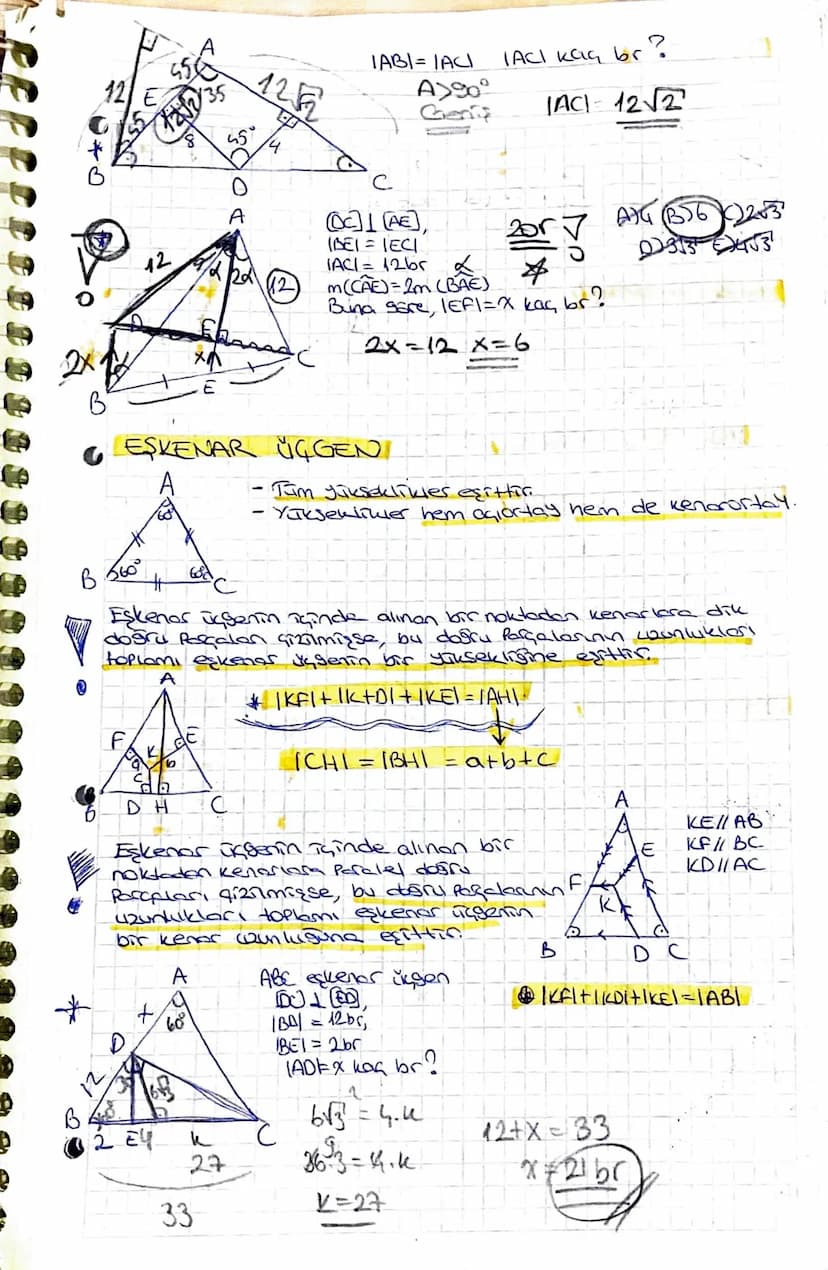 |AB|=|AC| |AC| kaç br?
A>90°
Geniş
|AC|=12√2
A
45
12
E
12√2
135
12√2
45
8
45°
4
B
D
C
[DC]⊥[AE],
|BE|=|EC|
|AC|=12br
m(CÂE)=2m(BÂE)
Buna göre, |EF|=x kaç br?
2x=12 x=6
A)4 B)6 C)2√3
D)3√3 E)4√3
A
12
α
2α
12
D
F
2x
x
B
E
C
EŞKENAR ÜÇGEN
- Tüm yükseklikler eşittir.
- Yükseklikler hem açıortay hem de kenarortay.
A
60°
B
60°
60°
C
Eşkenar üçgenin içinde alınan bir noktadan kenarlara dik
doğru parçaları çizilmişse, bu doğru parçalarının uzunlukları
toplamı eşkenar üçgenin bir yüksekliğine eşittir.
* |KF|+|K+D|+|KE|=|AH|.
|CH|=|BH|=a+b+c
A
F
E
K
a
b
c
B
D
H
C
Eşkenar üçgenin içinde alınan bir
noktadan kenarlara paralel doğru
parçaları çizilmişse, bu doğru parçalarının
uzunlukları toplamı eşkenar üçgenin
bir kenar uzunluğuna eşittir.
A
E
F
K
B
D
C
KE//AB
KF//BC
KD//AC
|KF|+|KD|+|KE|=|AB|
ABC eşkenar üçgen
[DC]⊥[ED],
|BD|=12br,
|BE|=2br
|AD|=x kaç br?
A
60°
D
12
30
6√3
B
2
E
4
k
C
27
33
6√3² = 4.k
36.3=4.k
9
k=27
12+x=33
x=21br